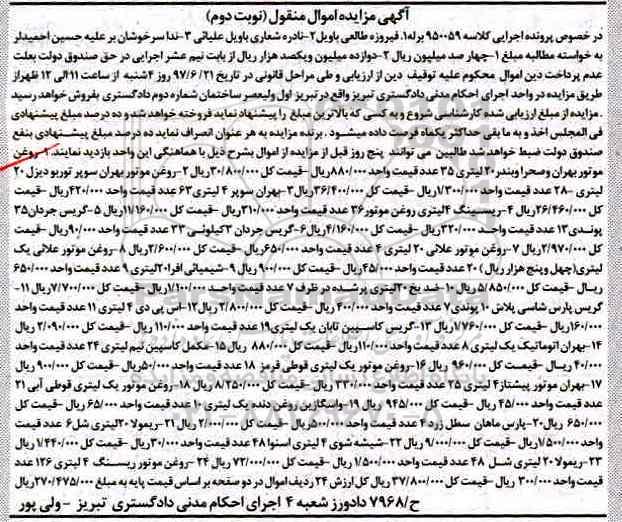 آگهی مزایده اموال منقول (نوبت دوم)
در خصوص پرونده اجرایی کلاسه ۹۵۰۰۵۹ برله ۱. فیروزه طالعی باویل ۲-نادره شعاری باویل علیائی ۳-ندا سرخوشان بر علیه حسین احمیدلر
به خواسته مطالبه مبلغ ۱-چهار صد میلیون ریال ۲-دوازده میلیون ویکصد هزار ریال از بابت نیم عشر اجرایی در حق صندوق دولت بعلت
عدم پرداخت دین اموال محکوم علیه توقیف دین از ارزیابی و طی مراحل قانونی در تاریخ ۹۷/۶/۲۱ روز ۴شنبه از ساعت ۱۱الی ۱۲ ظهراز
طریق مزایده در واحد اجرای احکام مدنی دادگستری تبریز واقع در تبریز اول ولیعصر ساختمان شماره دوم دادگستری بفروش خواهد رسید
.مزایده از مبلغ ارزیابی شده کارشناسی شروع و به کسی که بالاترین مبلغ را پیشنهاد نماید فروخته خواهد شد و ده درصد مبلغ پیشنهادی
فی المجلس اخذ و به ما بقی حداکثر یکماه فرصت داده میشود .برنده مزایده به هر عنوان انصراف نماید ده درصد مبلغ پیشنهادی بنفع
صندوق دولت ضبط خواهد شد طالبین می توانند پنج روز قبل از مزایده از اموال بشرح ذیل با هماهنگی این واحد بازدید نمایند. ۱-روغن
موتور بهران وصحرا وبندر ۲۰ لیتری ۳۵ عدد قیمت واحد ۸۸۰/۰۰۰ریال -قیمت کل ۳۰/۸۰۰/۰۰۰ریال ۲-روغن موتور بهران سوپر توربو دیزل ۲۰
لیتری -۲۸ عدد قیمت واحد ۱/۳۰۰/۰۰۰ریال -قیمت کل ۳۶/۴۰۰/۰۰۰ریال ۳-بهران سوپر ۴ لیتری ۶۳ عدد قیمت واحد ۴۲۰/۰۰۰ریال -قیمت
کل ۲۶/۴۶۰/۰۰۰ریال ۴-ریسینگ ۴لیتری روغن موتور ۳۶ عدد قیمت واحد ۳۱۰/۰۰۰ریال -قیمت کل ۱۱/۱۶۰/۰۰۰ریال ۵-گریس جردان۳۵
پوندی ۱۳ عدد قیمت واحد ۳۲۰/۰۰۰ریال -قیمت کل ۴/۱۶۰/۰۰۰ریال ۶-گریس جردان ۳کیلوئی ۳۳ عدد قیمت واحد ۹۰/۰۰۰ریال -قیمت
کل ۲/۹۷۰/۰۰۰ریال ۷-روغن موتور علائی ۲۰ لیتری ۴ عدد قیمت واحد ۶۵۰/۰۰۰ریال -قیمت کل ۲/۶۰۰/۰۰۰ریال ۸-روغن موتور علائی یک
لیتری(چهل وپنج هزار ریال) ۲۰ عدد قیمت واحد ۴۵/۰۰۰ریال -قیمت کل ۹۰۰/۰۰۰ ریال ۹-شیمیائی افرا۲۰لیتری ۹ عدد قیمت واحد ۶۵۰/۰۰۰
ریال -قیمت کل ۵/۸۵۰/۰۰۰ ریال ۱۰-ضد یخ ۲۰لیتری پرشده در ظرف ۷ عدد قیمت واحد ۱/۱۰۰/۰۰۰ریال -قیمت کل ۷/۷۰۰/۰۰۰ ریال ۱۱-
گریس پارس شاسی پلاش ۱۰ پوندی ۷ عدد قیمت واحد ۴۰۰/۰۰۰ ریال -قیمت کل ۲/۸۰۰/۰۰۰ ریال ۱۲-اس پی دی ۴ لیتری ۱۱ عدد قیمت واحد
۱۶۰/۰۰۰ریال -قیمت کل ۱/۷۶۰/۰۰۰ریال ۱۳-گریس کاسپین تابان یک لیتری ۱۹ عدد قیمت واحد ۱۱۰/۰۰۰ ریال -قیمت کل ۲/۰۹۰/۰۰۰ ریال
۱۴-بهران اتوماتیک یک لیتری ۸ عدد قیمت واحد ۱۱۰/۰۰۰ریال -قیمت کل ۸۸۰/۰۰۰ ریال ۱۵-مکمل کاسپین نیم لیتری ۲۴ عدد قیمت واحد
۴۰/۰۰۰ ریال -قیمت کل ۹۶۰/۰۰۰ ریال ۱۶-روغن موتور یک لیتری قوطی قرمز ۱۸ عدد قیمت واحد ۵۰/۰۰۰ریال -قیمت کل ۹۰۰/۰۰۰ ریال
۱۷-بهران موتور پیشتاز ۴ لیتری ۲۵ عدد قیمت واحد ۳۳۰/۰۰۰ ریال -قیمت کل ۸/۲۵۰/۰۰۰ ریال ۱۸-روغن موتور یک لیتری قوطی آبی ۲۱
عدد قیمت واحد ۴۵/۰۰۰ ریال -قیمت کل ۹۴۵/۰۰۰ ریال ۱۹-واسگازین روغن دنده یک لیتری ۱۰ عدد قیمت واحد ۶۵/۰۰۰ ریال -قیمت کل
۶۵۰/۰۰۰ ریال ۲۰-پارس ماهان سطل زرد ۴ عدد قیمت واحد ۵۰۰/۰۰۰ریال -قیمت کل ۲/۰۰۰/۰۰۰ ریال ۲۱-ریمولا ۲۰لیتری شل ۶ عدد قیمت
واحد ۱/۵۰۰/۰۰۰ریال -قیمت کل ۹/۰۰۰/۰۰۰ ریال ۲۲-شیشه شوی ۴ لیتری اسنوا ۴۸ عدد قیمت واحد ۳۰/۰۰۰ریال -قیمت کل ۱/۴۴۰/۰۰۰ ریال
۲۳-ریمولا ۲۰ لیتری شل ۴۸ عدد قیمت واحد ۱/۵۰۰/۰۰۰ ریال -قیمت کل ۷۲/۰۰۰/۰۰۰ ریال ۲۴-روغن موتور ریسینگ ۴ لیتری ۱۲۶ عدد
قیمت واحد ۳۰۰/۰۰۰ ریال -قیمت کل ۳۷/۸۰۰/۰۰۰ ریال کل ارزش ۲۴ ردیف اموال در دو صفحه بر اساس قیمت پایه به مبلغ ۲۷۰/۴۷۵/۰۰۰ریال
ح/۷۹۶۸ دادورز شعبه ۴ اجرای احکام مدنی دادگستری تبریز - ولی پور